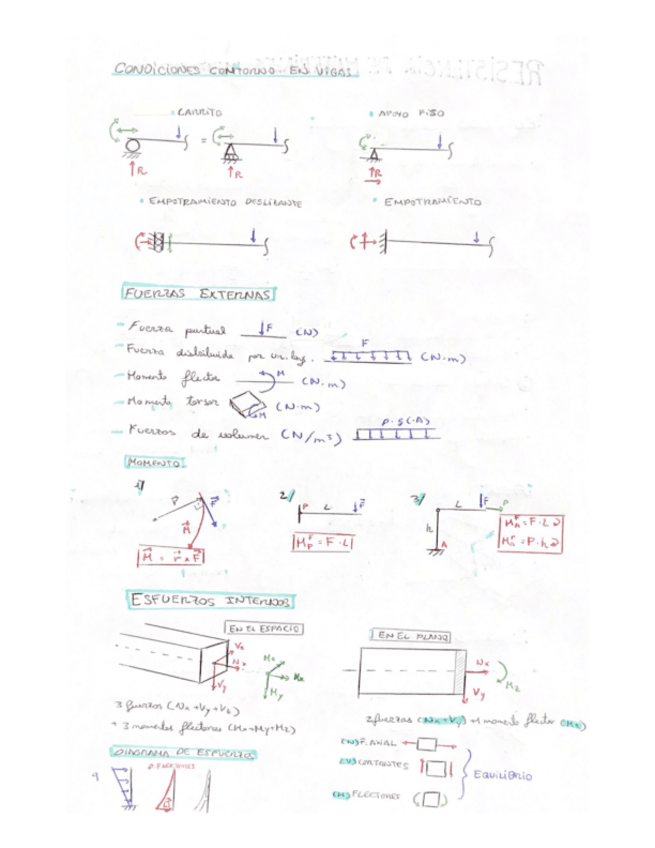 CONDICIONES CONTORNO EN VIGAS
RESISTENCIA DE MATERIALES
• CARRITO
• APOYO FIJO
=
R
R
R
• EMPOTRAMIENTO DESLIZANTE
• EMPOTRAMIENTO
FUERZAS EXTERNAS
- Fuerza puntual F (N)
- Fuerza distribuida por un. long. F (N·m)
- Momento flector M (N·m)
- Momento torsor M (N·m)
- Fuerzas de volumen (N/m³) ρ·g(·A)
MOMENTO
1/
2/ P L F
3/ L F P
r F
M
h
A
M = r x F
M_P^F = F·L
M_A^F = F·L
M_A^P = P·h
ESFUERZOS INTERNOS
EN EL ESPACIO
EN EL PLANO
Vz
Nx
Vy
Mz
Mx
My
Nx
Vy
Mz
3 fuerzas (Nx+Vy+Vz)
+ 3 momentos flectores (Mx+My+Mz)
2 fuerzas (Nx+Vy) + 1 momento flector (Mz)
DIAGRAMA DE ESFUERZO
D. FLECTORES
q
(N) F. AXIAL
(V) CORTANTES
(M) FLECTORES
EQUILIBRIO